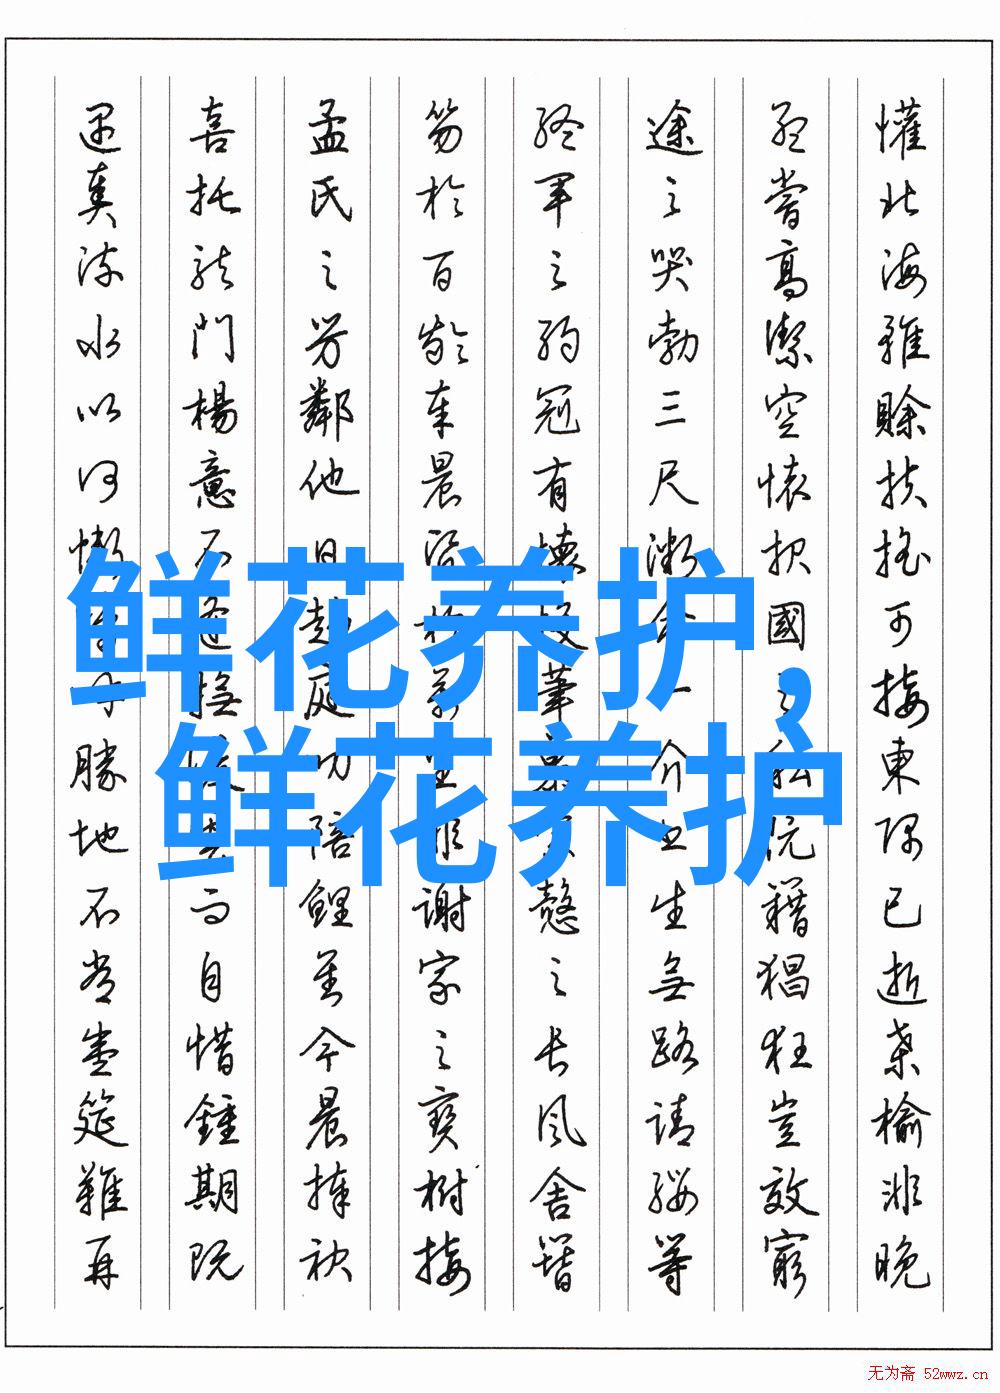 懽北海雖賒扶搖可接東隅已逝桑榆非晚
孟嘗高潔空懷報國之私阮籍猖狂豈效窮
途之哭勃三尺微命一介書生無路請纓等
終軍之弱冠有懷投筆慕宗慤之長風舍簪
笏於百齡奉晨昏於萬里非謝家之寶樹接
孟氏之芳鄰他日趨庭叨陪鯉對今晨捧袂
喜托龍門楊意不逢撫凌雲而自惜鍾期既
遇奏流水以何慚嗚呼勝地不常盛筵難再
鲜花养护，
鲜花养护
无为斋 52wwz.cn